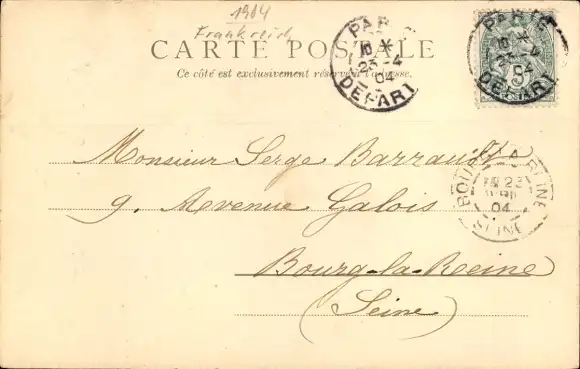 1904
Frankreich
CARTE POSTALE
Ce côté est exclusivement réservé à l'adresse.
PARIS
10 *
23 -4
04
DEPART
PARIS
10 *
23 -4
04
DEPART
5
Monsieur Serge Barrault
9. Avenue Galois
Bourg-la-Reine
(Seine)
BOURG LA REINE
23
04
SEINE